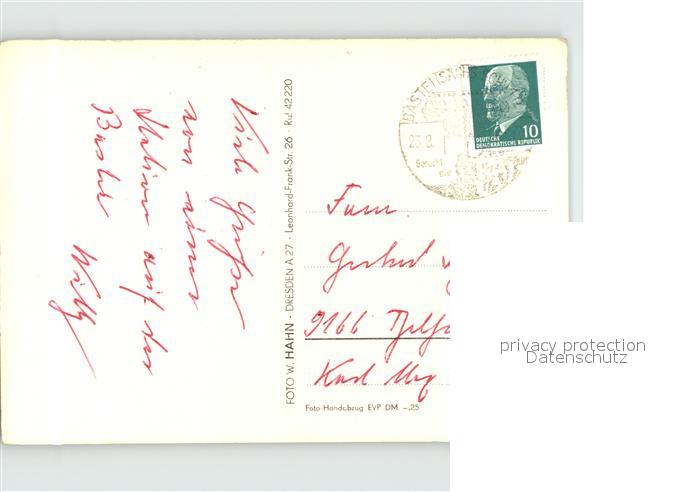 Viele Grüße
von einer
auf der
Bastei
Willy
FOTO W. HAHN · DRESDEN A 27 · Leonhard-Frank-Str. 26 · Ruf 42 220
BASTEI (SÄCHS
23.8.
Besucht
die
10
DEUTSCHE
DEMOKRATISCHE REPUBLIK
Fam.
Gerhard
9166
Karl
Foto-Handabzug EVP DM -,25
privacy protection
Datenschutz